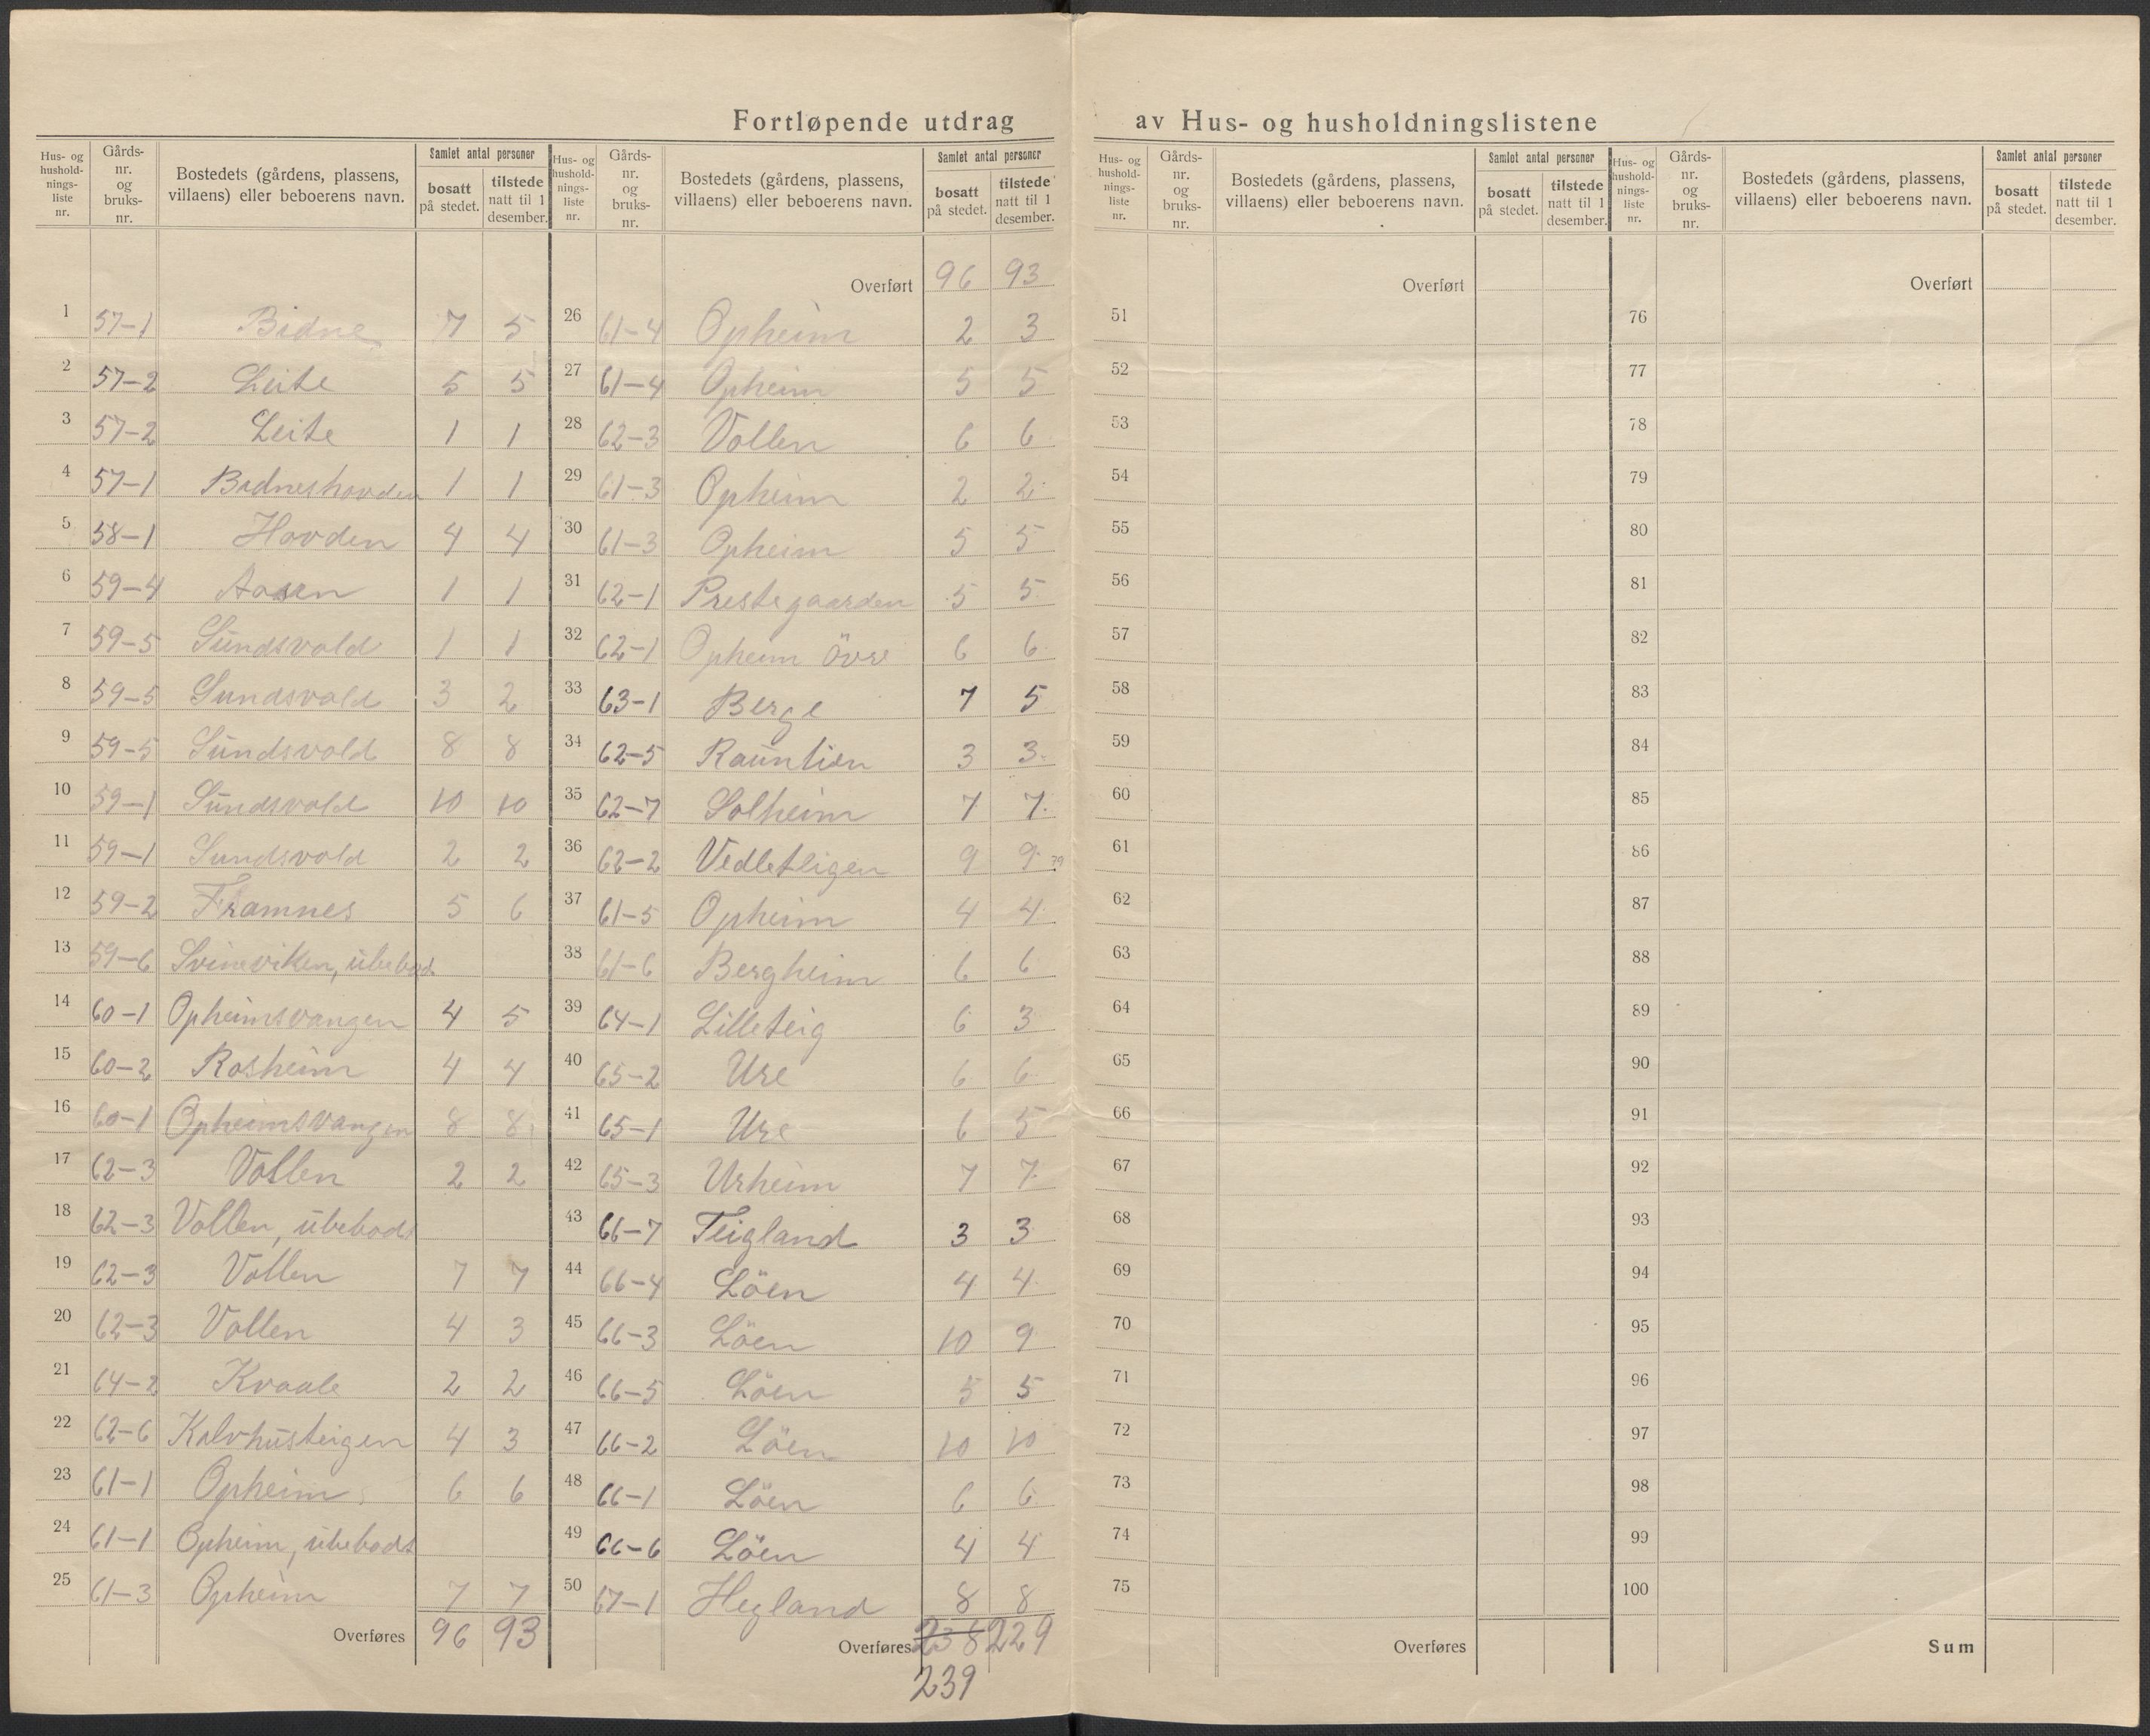 Fortløpende utdrag av Hus- og husholdningslistene
Hus- og hushold-nings-liste nr. | Gårds-nr. og bruks-nr. | Bostedets (gårdens, plassens, villaens) eller beboerens navn. | Samlet antal personer | bosatt på stedet. | tilstede natt til 1 desember.
1 57-1 Bidne 7 5
2 57-2 Leite 5 5
3 57-2 Leite 1 1
4 57-1 Bidneshovden 1 1
5 58-1 Hovden 4 4
6 59-4 Aasen 1 1
7 59-5 Sundsvold 1 1
8 59-5 Sundsvold 3 2
9 59-5 Sundsvold 8 8
10 59-1 Sundsvold 10 10
11 59-1 Sundsvold 2 2
12 59-2 Framnes 5 6
13 59-6 Svineviken, ubebodt
14 60-1 Opheimsvangen 4 5
15 60-2 Rosheim 4 4
16 60-1 Opheimsvangen 8 8
17 62-3 Vollen 2 2
18 62-3 Vollen, ubebodt
19 62-3 Vollen 7 7
20 62-3 Vollen 4 3
21 64-2 Kvaale 2 2
22 62-6 Kalvhusteigen 4 3
23 61-1 Opheim 6 6
24 61-1 Opheim, ubebodt
25 61-3 Opheim 7 7
Overføres 96 93
Hus- og hushold-nings-liste nr. | Gårds-nr. og bruks-nr. | Bostedets (gårdens, plassens, villaens) eller beboerens navn. | Samlet antal personer | bosatt på stedet. | tilstede natt til 1 desember.
Overført 96 93
26 61-4 Opheim 2 3
27 61-4 Opheim 5 5
28 62-3 Vollen 6 6
29 61-3 Opheim 2 2
30 61-3 Opheim 5 5
31 62-1 Prestegaarden 5 5
32 62-1 Opheim övre 6 6
33 63-1 Berge 7 5
34 62-5 Raunlien 3 3
35 62-7 Solheim 7 7
36 62-2 Vedleteigen 9 9 79
37 61-5 Opheim 4 4
38 61-6 Bergheim 6 6
39 64-1 Lilleteig 6 3
40 65-2 Ure 6 6
41 65-1 Ure 6 5
42 65-3 Urheim 7 7
43 66-7 Teigland 3 3
44 66-4 Löen 4 4
45 66-3 Löen 10 9
46 66-5 Löen 5 5
47 66-2 Löen 10 10
48 66-1 Löen 6 6
49 66-6 Löen 4 4
50 67-1 Hegland 8 8
Overføres 238 229
239
Hus- og hushold-nings-liste nr. | Gårds-nr. og bruks-nr. | Bostedets (gårdens, plassens, villaens) eller beboerens navn. | Samlet antal personer | bosatt på stedet. | tilstede natt til 1 desember.
Overført
51
52
53
54
55
56
57
58
59
60
61
62
63
64
65
66
67
68
69
70
71
72
73
74
75
Overføres
Hus- og hushold-nings-liste nr. | Gårds-nr. og bruks-nr. | Bostedets (gårdens, plassens, villaens) eller beboerens navn. | Samlet antal personer | bosatt på stedet. | tilstede natt til 1 desember.
Overført
76
77
78
79
80
81
82
83
84
85
86
87
88
89
90
91
92
93
94
95
96
97
98
99
100
Sum